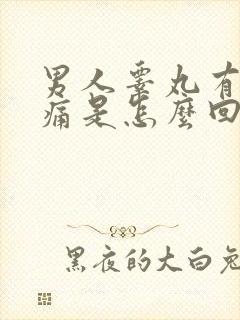 男人睪丸有
痛是怎麼回
黑夜的大白兔